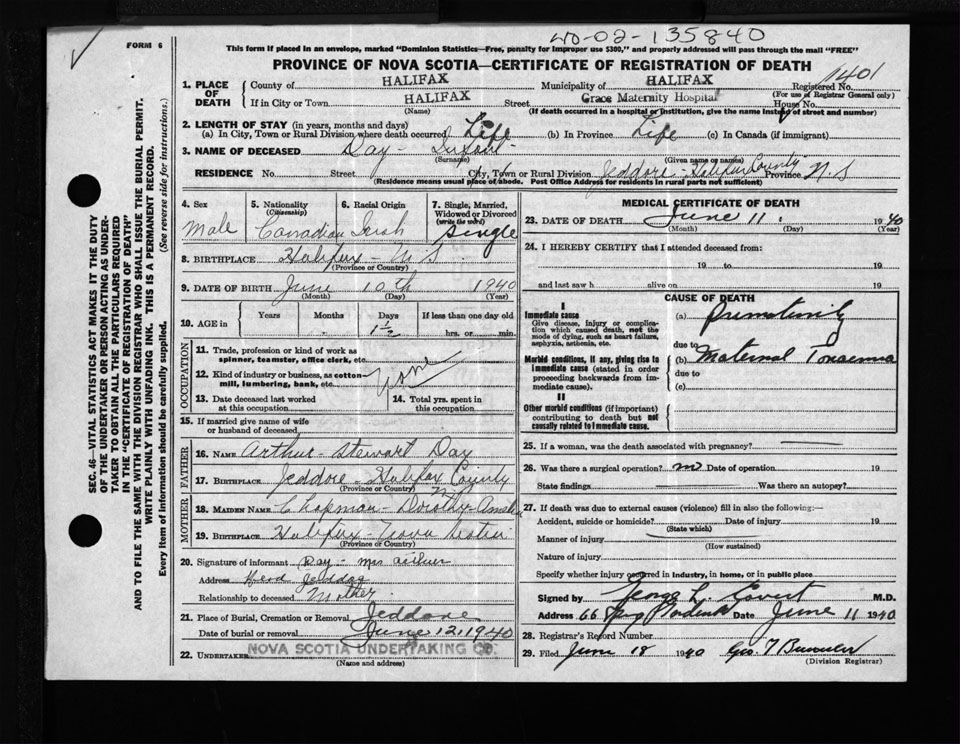 WO-02-135840
FORM 6
This form if placed in an envelope, marked "Dominion Statistics—Free, penalty for improper use $300," and properly addressed will pass through the mail "FREE"
PROVINCE OF NOVA SCOTIA—CERTIFICATE OF REGISTRATION OF DEATH
1401
SEC. 46—VITAL STATISTICS ACT MAKES IT THE DUTY
OF THE UNDERTAKER OR PERSON ACTING AS UNDER-
TAKER TO OBTAIN ALL THE PARTICULARS REQUIRED
IN THE "CERTIFICATE OF REGISTRATION OF DEATH"
AND TO FILE THE SAME WITH THE DIVISION REGISTRAR WHO SHALL ISSUE THE BURIAL PERMIT.
WRITE PLAINLY WITH UNFADING INK. THIS IS A PERMANENT RECORD.
Every item of information should be carefully supplied. (See reverse side for instructions.)
1. PLACE OF DEATH
County of HALIFAX Municipality of HALIFAX Registered No.
(For use of Registrar General only)
If in City or Town HALIFAX Street Grace Maternity Hospital House No.
(Name) (If death occurred in a hospital or institution, give the name instead of street and number)
2. LENGTH OF STAY (in years, months and days)
(a) In City, Town or Rural Division where death occurred Life (b) In Province Life (c) In Canada (if immigrant)
3. NAME OF DECEASED Day - Infant
(Surname) (Given name or names)
RESIDENCE No. Street City, Town or Rural Division Jeddore - Halifax County Province N.S
(Residence means usual place of abode. Post Office Address for residents in rural parts not sufficient)
4. Sex
Male
5. Nationality
(Citizenship)
Canadian
6. Racial Origin
Irish
7. Single, Married,
Widowed or Divorced
(write the word)
Single
8. BIRTHPLACE Halifax - N S
(Province or Country)
9. DATE OF BIRTH June 10th 1940
(Month) (Day) (Year)
10. AGE in Years Months Days If less than one day old
1½ hrs. or min.
OCCUPATION
11. Trade, profession or kind of work as
spinner, teamster, office clerk, etc.
12. Kind of industry or business, as cotton-
mill, lumbering, bank, etc.
None
13. Date deceased last worked
at this occupation
14. Total yrs. spent in
this occupation
15. If married give name of wife
or husband of deceased
FATHER
16. NAME Arthur - Stewart Day
17. BIRTHPLACE Jeddore - Halifax County
(Province or Country)
MOTHER
18. MAIDEN NAME Chapman - Dorothy - Amelia
19. BIRTHPLACE Halifax - Nova Scotia
(Province or Country)
20. Signature of informant Day - Mrs Arthur
Address Head Jeddore
Relationship to deceased Mother
21. Place of Burial, Cremation or Removal Jeddore
Date of burial or removal June 12, 1940
22. UNDERTAKER NOVA SCOTIA UNDERTAKING CO.
(Name and address)
MEDICAL CERTIFICATE OF DEATH
23. DATE OF DEATH June 11 1940
(Month) (Day) (Year)
24. I HEREBY CERTIFY that I attended deceased from:
19 to 19
and last saw h alive on 19
CAUSE OF DEATH
I
Immediate cause
Give disease, injury or complica-
tion which caused death, not the
mode of dying, such as heart failure,
asphyxia, asthenia, etc.
(a) Prematurity
due to
Morbid conditions, if any, giving rise to
immediate cause (stated in order
proceeding backwards from im-
mediate cause).
(b) Maternal Toxaemia
due to
(c)
II
Other morbid conditions (if important)
contributing to death but not
causally related to immediate cause.
25. If a woman, was the death associated with pregnancy?
26. Was there a surgical operation? no Date of operation 19
State findings Was there an autopsy?
27. If death was due to external causes (violence) fill in also the following:—
Accident, suicide or homicide? Date of injury 19
(State which)
Manner of injury
(How sustained)
Nature of injury
Specify whether injury occurred in industry, in home, or in public place
Signed by George L. Covert M.D.
Address 66 Spg Date June 11 1940
28. Registrar's Record Number
29. Filed June 18 1940 Geo. T
(Division Registrar)